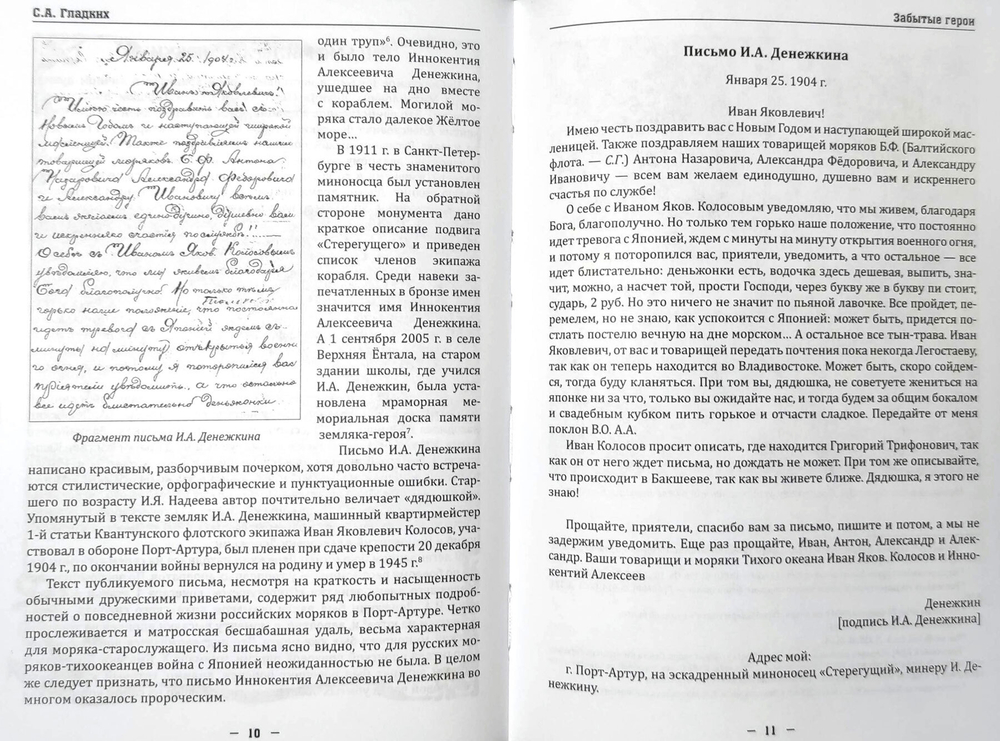 С.А. Гладких
Января 25. 1904 г.
Иванъ Яковлевичъ!
Имѣю честь поздравить васъ съ
Новымъ Годомъ и наступающей широкой
Также поздравляемъ нашихъ
товарищей моряковъ Б.Ф. Антона
Назаровича Александра Фёдоровича
и Александру Ивановичу всѣмъ
вамъ желаемъ единодушно, душевно вамъ
и искренняго счастія по службѣ!
О себѣ съ Иваномъ Яков. Колосовымъ
увѣдомляю, что мы живемъ благодаря
Бога благополучно! Но только тѣмъ
горько наше положеніе, что постоянно
идетъ тревога съ Японіей ждемъ съ
минуты на минуту открытія военна
го огня, и потому я поторопился васъ
пріятели увѣдомить, а что остально
все идетъ блистательно деньжонки
Фрагмент письма И.А. Денежкина
один труп»⁶. Очевидно, это
и было тело Иннокентия
Алексеевича Денежкина,
ушедшее на дно вместе
с кораблем. Могилой мо-
ряка стало далекое Жёлтое
море...
В 1911 г. в Санкт-Петер-
бурге в честь знаменитого
миноносца был установлен
памятник. На обратной
стороне монумента дано
краткое описание подвига
«Стерегущего» и приведен
список членов экипажа
корабля. Среди навеки за-
печатленных в бронзе имен
значится имя Иннокентия
Алексеевича Денежкина.
А 1 сентября 2005 г. в селе
Верхняя Ёнтала, на старом
здании школы, где учился
И.А. Денежкин, была уста-
новлена мраморная ме-
мориальная доска памяти
земляка-героя⁷.
Письмо И.А. Денежкина
написано красивым, разборчивым почерком, хотя довольно часто встреча-
ются стилистические, орфографические и пунктуационные ошибки. Стар-
шего по возрасту И.Я. Надеева автор почтительно величает «дядюшкой».
Упомянутый в тексте земляк И.А. Денежкина, машинный квартирмейстер
1-й статьи Квантунского флотского экипажа Иван Яковлевич Колосов, уча-
ствовал в обороне Порт-Артура, был пленен при сдаче крепости 20 декабря
1904 г., по окончании войны вернулся на родину и умер в 1945 г.⁸
Текст публикуемого письма, несмотря на краткость и насыщенность
обычными дружескими приветами, содержит ряд любопытных подроб-
ностей о повседневной жизни российских моряков в Порт-Артуре. Четко
прослеживается и матросская бесшабашная удаль, весьма характерная
для моряка-старослужащего. Из письма ясно видно, что для русских мо-
ряков-тихоокеанцев война с Японией неожиданностью не была. В целом
же следует признать, что письмо Иннокентия Алексеевича Денежкина во
многом оказалось пророческим.
— 10 —
Забытые герои
Письмо И.А. Денежкина
Января 25. 1904 г.
Иван Яковлевич!
Имею честь поздравить вас с Новым Годом и наступающей широкой мас-
леницей. Также поздравляем наших товарищей моряков Б.Ф. (Балтийского
флота. — С.Г.) Антона Назаровича, Александра Фёдоровича, и Александру
Ивановичу — всем вам желаем единодушно, душевно вам и искреннего
счастья по службе!
О себе с Иваном Яков. Колосовым уведомляю, что мы живем, благодаря
Бога, благополучно. Но только тем горько наше положение, что постоянно
идет тревога с Японией, ждем с минуты на минуту открытия военного огня,
и потому я поторопился вас, приятели, уведомить, а что остальное — все
идет блистательно: деньжонки есть, водочка здесь дешевая, выпить, зна-
чит, можно, а насчет той, прости Господи, через букву же в букву пи стоит,
сударь, 2 руб. Но это ничего не значит по пьяной лавочке. Все пройдет, пе-
ремелем, но не знаю, как успокоится с Японией: может быть, придется по-
стлать постелю вечную на дне морском... А остальное все тын-трава. Иван
Яковлевич, от вас и товарищей передать почтения пока некогда Легостаеву,
так как он теперь находится во Владивостоке. Может быть, скоро сойдем-
ся, тогда буду кланяться. При том вы, дядюшка, не советуете жениться на
японке ни за что, только вы ожидайте нас, и тогда будем за общим бокалом
и свадебным кубком пить горькое и отчасти сладкое. Передайте от меня
поклон В.О. А.А.
Иван Колосов просит описать, где находится Григорий Трифонович, так
как он от него ждет письма, но дождать не может. При том же описывайте,
что происходит в Бакшееве, так как вы живете ближе. Дядюшка, я этого не
знаю!
Прощайте, приятели, спасибо вам за письмо, пишите и потом, а мы не
задержим уведомить. Еще раз прощайте, Иван, Антон, Александр и Алек-
сандр. Ваши товарищи и моряки Тихого океана Иван Яков. Колосов и Инно-
кентий Алексеев
Денежкин
[подпись И.А. Денежкина]
Адрес мой:
г. Порт-Артур, на эскадренный миноносец «Стерегущий», минеру И. Де-
нежкину.
— 11 —